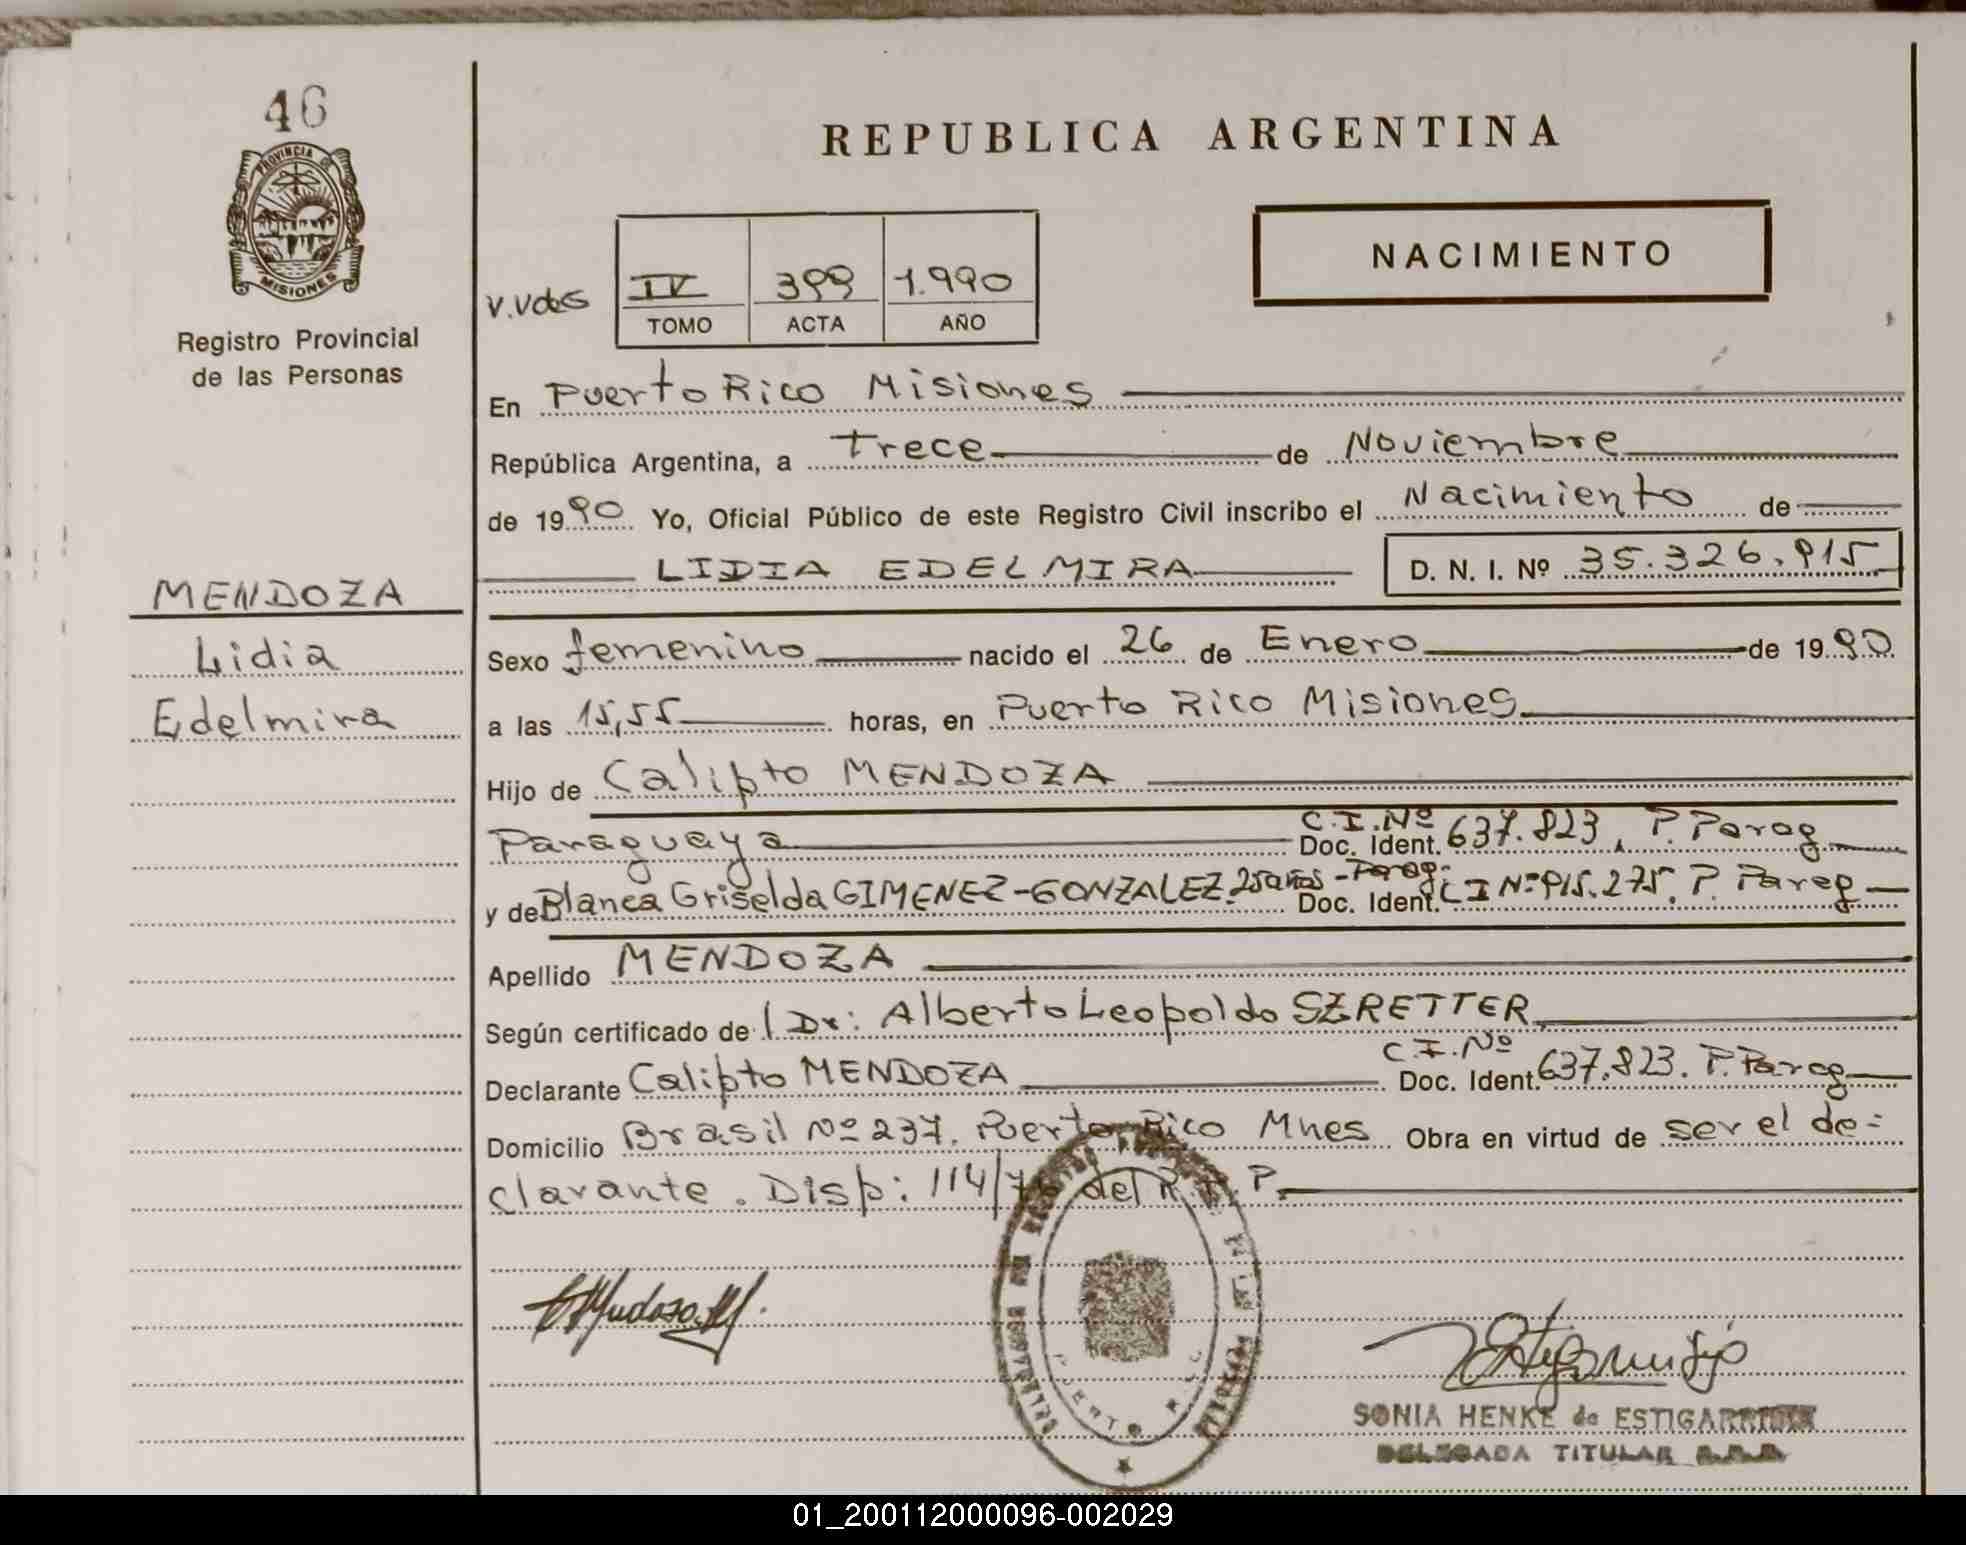 46
PROVINCIA DE
MISIONES
Registro Provincial
de las Personas
MENDOZA
Lidia
Edelmira
REPUBLICA ARGENTINA
NACIMIENTO
IV 399 1.990
TOMO ACTA AÑO
En Puerto Rico Misiones
República Argentina, a trece de Noviembre
de 1990 Yo, Oficial Público de este Registro Civil inscribo el Nacimiento de
LIDIA EDELMIRA D. N. I. Nº 35.326.915
Sexo femenino nacido el 26 de Enero de 1990
a las 15,55 horas, en Puerto Rico Misiones
Hijo de Calipto MENDOZA
Paraguaya C.I.Nº Doc. Ident. 637.823, P. Parag
y de Blanca Griselda GIMENEZ-GONZALEZ. 25 años - Parag. Doc. Ident. CI Nº 915.275. P. Parag
Apellido MENDOZA
Según certificado de l Dr: Alberto Leopoldo SZRETTER
Declarante Calipto MENDOZA C.I.Nº Doc. Ident. 637.823. P. Parag
Domicilio Brasil Nº 237. Puerto Rico Mnes Obra en virtud de ser el de=
clarante. Disp: 114/ del R. P.
PUERTO RICO
SONIA HENKE de ESTIGARRIBIA
DELEGADA TITULAR
01_200112000096-002029